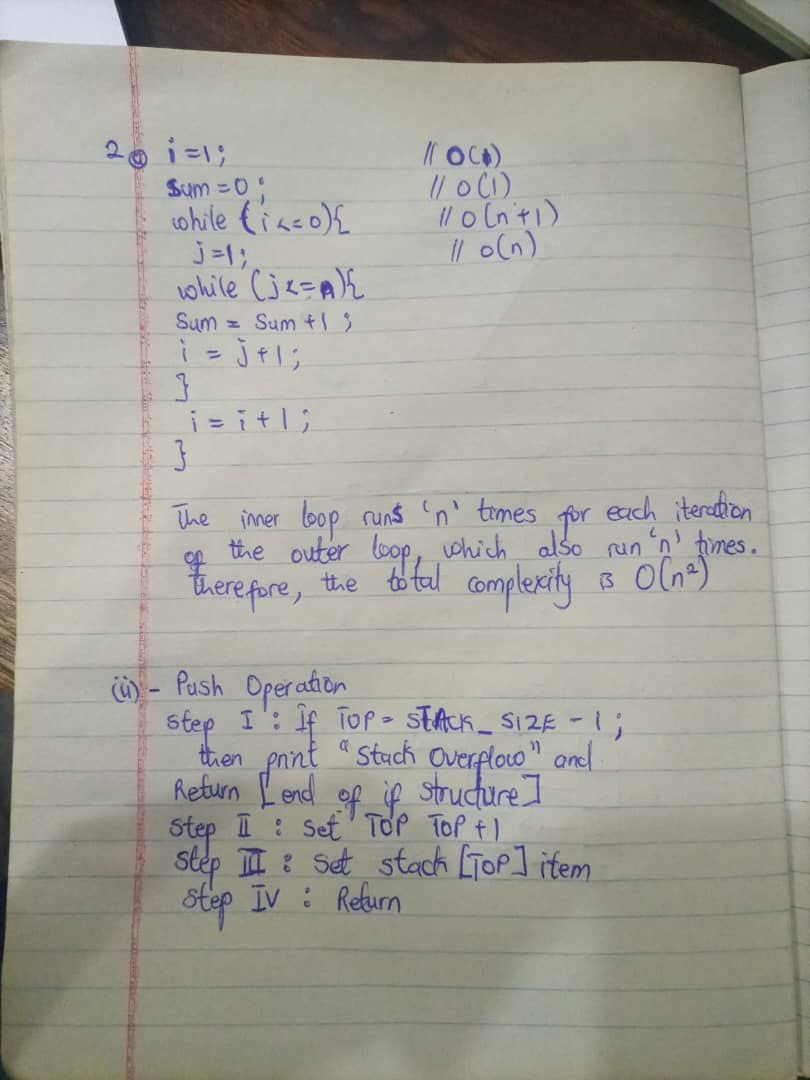 2 i) i =1; // O(1)
Sum =0; // O(1)
while (i <=0){ // O(n+1)
j=1; // O(n)
while (j<=n){
Sum = Sum +1 ;
i = j+1;
}
i = i +1;
}
The inner loop runs 'n' times for each iteration
of the outer loop, which also run 'n' times.
Therefore, the total complexity is O(n²)
(ii) - Push Operation
Step I : If TOP = STACK_SIZE -1 ;
then print "Stack Overflow" and
Return [end of if structure]
Step II : Set TOP TOP +1
Step III : Set stack [TOP] item
Step IV : Return